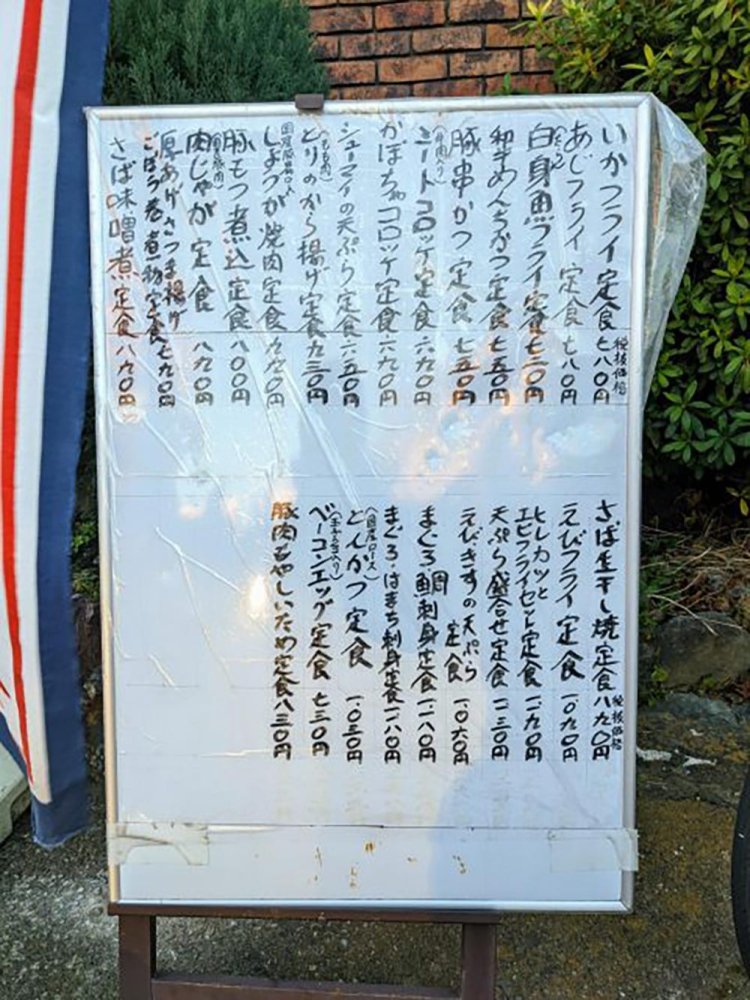 いかフライ定食 七八〇円
税抜価格
あじフライ定食 七八〇円
白身魚フライ定食 七三〇円
和牛めんちかつ定食 七五〇円
豚串かつ定食 七五〇円
ミートコロッケ定食 六九〇円
(牛肉入り)
かぼちゃコロッケ定食 六九〇円
シューマイの天ぷら定食 六五〇円
とりのから揚げ定食 九三〇円
(もも肉)
しょうが焼肉定食 九九〇円
国産豚肩ロース
豚もつ煮込定食 八〇〇円
肉じゃが定食 八九〇円
厚あげさつま揚げ
ごぼう巻 煮物定食 七九〇円
さば味噌煮定食 八九〇円
さば生干し焼定食 八九〇円
税抜価格
えびフライ定食 一、〇九〇円
ヒレカツと
エビフライセット定食
天ぷら盛合せ定食 一、二三〇円
えびきすの天ぷら
定食 一、〇六〇円
まぐろ鯛刺身定食 一、一八〇円
まぐろ・はまち刺身定食 一、一八〇円
とんかつ定食 一、〇三〇円
(国産ロース)
ベーコンエッグ定食 七三〇円
(玉子三ケ入り)
豚肉もやしいため定食 八三〇円